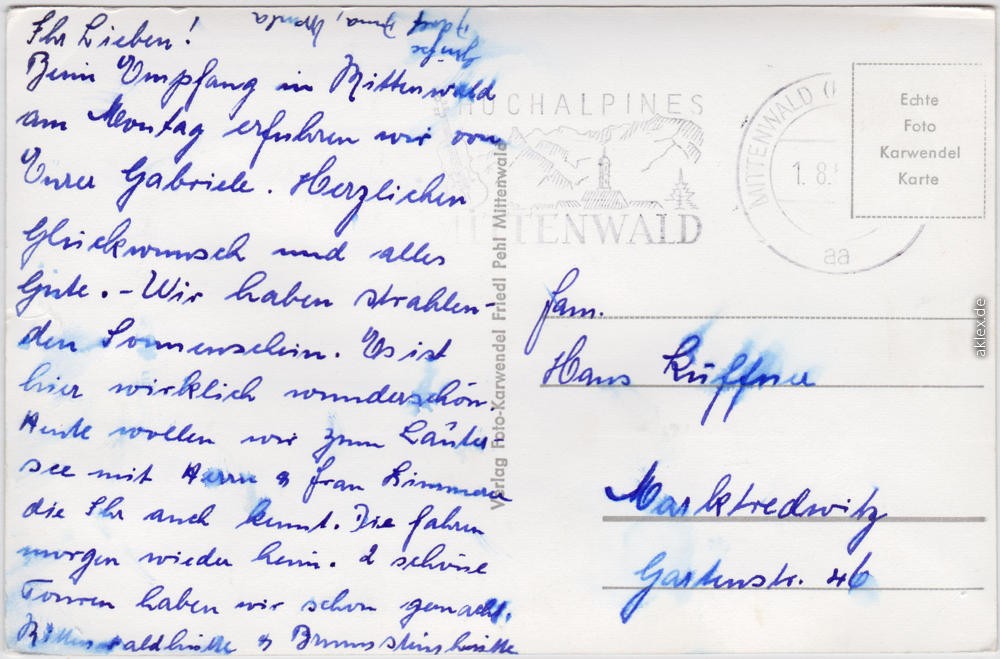 Ihr Lieben!
Beim Empfang in Mittenwald
am Montag erfuhren wir von
Eurer Gabriele. Herzlichen
Glückwunsch und alles
Gute. - Wir haben strahlen-
den Sonnenschein. Es ist
hier wirklich wunderschön.
Heute wollen wir zum Lauter-
see mit Herrn & Frau
die Ihr auch kennt. Die fahren
morgen wieder heim. 2 schöne
Touren haben wir schon gemacht.
Mittenwaldhütte & Brunnsteinhütte
Grüße
Adolf, Irma, Ursula
Verlag Foto-Karwendel Friedl Pehl Mittenwald
HOCHALPINES
MITTENWALD
MITTENWALD
1.8.
aa
Echte
Foto
Karwendel
Karte
Fam.
Hans Küffner
Marktredwitz
Gartenstr. 46
aklex.de